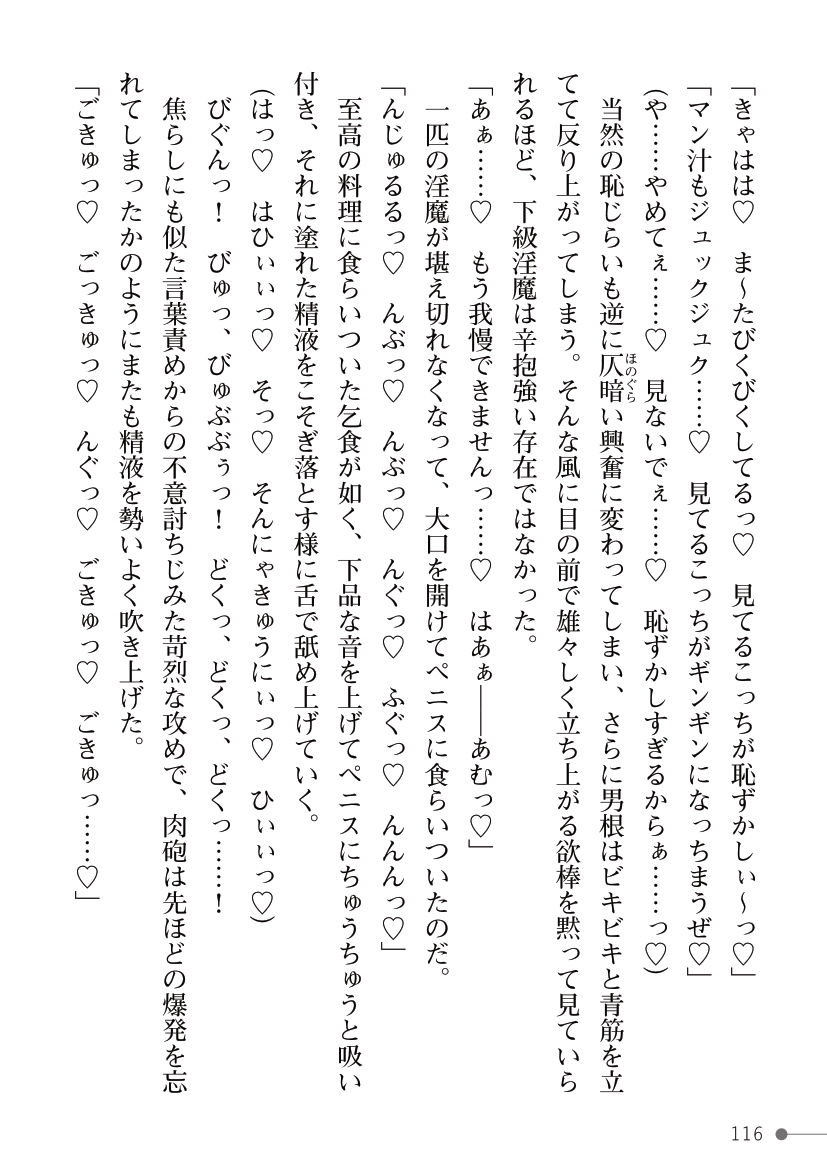 「きゃはは♡　ま～たびくびくしてるっ♡　見てるこっちが恥ずかしぃ～っ♡」
「マン汁もジュックジュク……♡　見てるこっちがギンギンになっちまうぜ♡」
(や……やめてぇ……♡　見ないでぇ……♡　恥ずかしすぎるからぁ……っ♡)
　当然の恥じらいも逆に仄暗い興奮に変わってしまい、さらに男根はビキビキと青筋を立
ほのぐら
てて反り上がってしまう。そんな風に目の前で雄々しく立ち上がる欲棒を黙って見ていら
れるほど、下級淫魔は辛抱強い存在ではなかった。
「あぁ……♡　もう我慢できませんっ……♡　はあぁ――あむっ♡」
　一匹の淫魔が堪え切れなくなって、大口を開けてペニスに食らいついたのだ。
「んじゅるるっ♡　んぶっ♡　んぶっ♡　んぐっ♡　ふぐっ♡　んんんっ♡」
　至高の料理に食らいついた乞食が如く、下品な音を上げてペニスにちゅうちゅうと吸い
付き、それに塗れた精液をこそぎ落とす様に舌で舐め上げていく。
(はっ♡　はひぃぃっ♡　そっ♡　そんにゃきゅうにぃっ♡　ひぃぃっ♡)
　びぐんっ！　びゅっ、びゅぶぶぅっ！　どくっ、どくっ、どくっ……！
　焦らしにも似た言葉責めからの不意討ちじみた苛烈な攻めで、肉砲は先ほどの爆発を忘
れてしまったかのようにまたも精液を勢いよく吹き上げた。
「ごきゅっ♡　ごっきゅっ♡　んぐっ♡　ごきゅっ♡　ごきゅっ……♡」
116